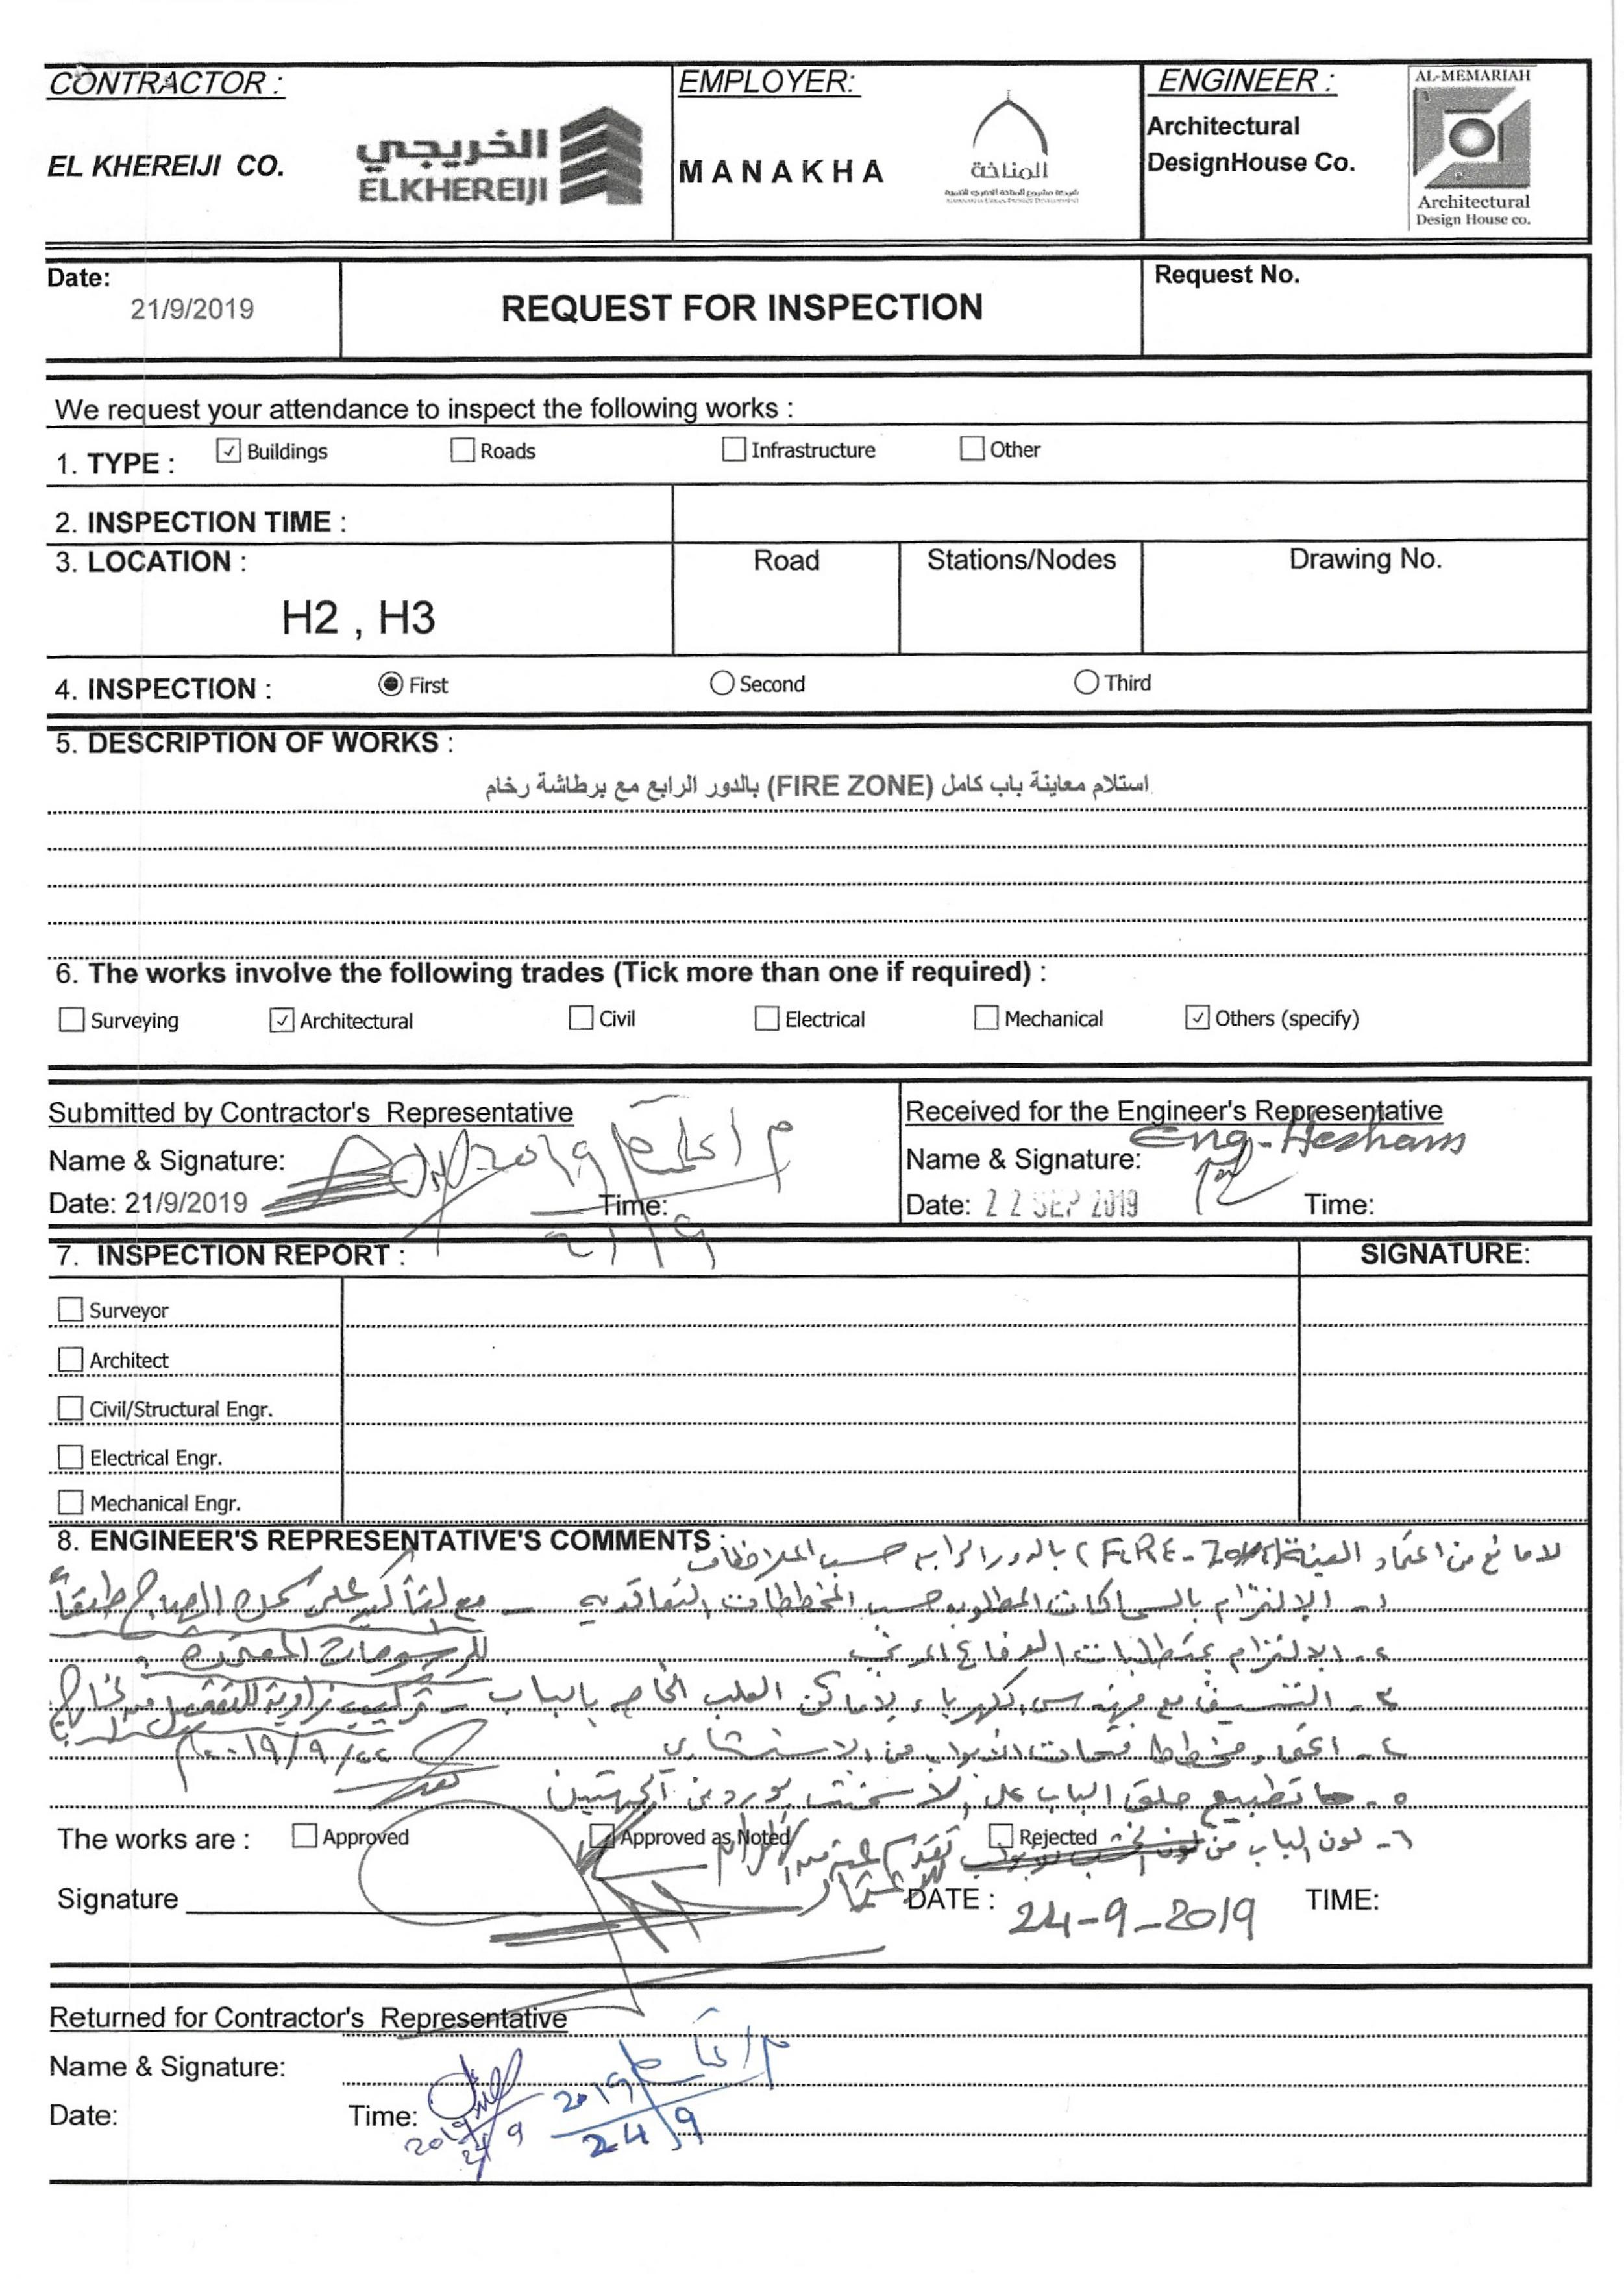 CONTRACTOR :
EL KHEREIJI CO.
الخريجي
ELKHEREIJI
EMPLOYER:
MANAKHA
المناخة
ENGINEER :
Architectural
DesignHouse Co.
AL-MEMARIAH
Architectural
Design House co.
Date:
21/9/2019
REQUEST FOR INSPECTION
Request No.
We request your attendance to inspect the following works :
1. TYPE : Buildings Roads Infrastructure Other
2. INSPECTION TIME :
3. LOCATION : Road Stations/Nodes Drawing No.
H2 , H3
4. INSPECTION : First Second Third
5. DESCRIPTION OF WORKS :
استلام معاينة باب كامل (FIRE ZONE) بالدور الرابع مع برطاشة رخام
6. The works involve the following trades (Tick more than one if required) :
Surveying Architectural Civil Electrical Mechanical Others (specify)
Submitted by Contractor's Representative
Name & Signature:
Date: 21/9/2019 Time:
2019
21/9
Received for the Engineer's Representative
Eng-Hesham
Name & Signature:
Date: 22 SEP 2019 Time:
7. INSPECTION REPORT : SIGNATURE:
Surveyor
Architect
Civil/Structural Engr.
Electrical Engr.
Mechanical Engr.
8. ENGINEER'S REPRESENTATIVE'S COMMENTS :
لا مانع من اعتماد العينة (FIRE-ZONE) بالدور الرابع حسب الملاحظات
١- الإلتزام بالسماكات المطلوبة حسب المخططات التعاقدية - مع التأكيد على طبقاً
للرسومات المعتمدة
٢- الإلتزام بمتطلبات الدفاع المدني
٣- التنسيق مع مهندس الكهرباء لأماكن العلب الخاص بالباب - تركيب زاوية
٤- مخطط فتحات الأبواب من الاستشاري
٢٠١٩/٩/٢٢
٥- حلق الباب على الجهتين
٦- لون الباب من
The works are : Approved Approved as Noted Rejected
Signature DATE : 24-9-2019 TIME:
Returned for Contractor's Representative
Name & Signature:
Date: Time:
2019
24/9
2019
24/9